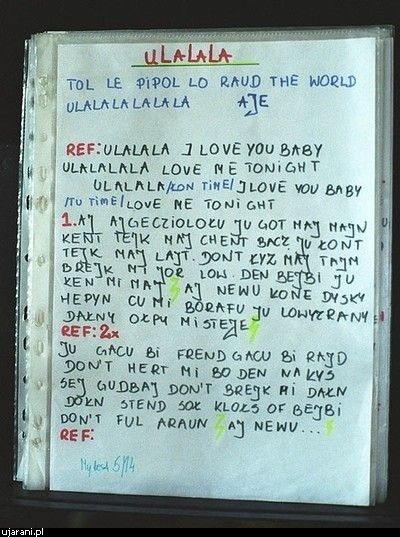 ULALALA
TOL LE PIPOL LO RAUD THE WORLD
ULALALALALALA AJE
REF: ULALALA I LOVE YOU BABY
ULALALALA LOVE ME TONIGHT
ULALALA /KON TIME/ I LOVE YOU BABY
/TU TIME/ LOVE ME TONIGHT
1. AJ AJGECZIOLOKU JU GOT MAJ MAJN
KENT TEJK MAJ CHENT BACZ JU KONT
TEJK MAJ LAJT. DONT KYZ MAJ TAJM
BREJK MI JOR LOW. DEN BEJBI JU
KEN MI MAJ AJ NEWU KONE DYSKY
HEPYN CU MI BORAFU JU LOWYZRANY
DAŁNY OŁPU MISTEJE
REF: 2x
JU GACU BI FREND GACU BI RAJD
DON'T HERT MI BO DEN NA KYS
SEJ GUDBAJ DON'T BREJK MI DAŁN
DOŁN STEND SOŁ KLOKS OF BEJBI
DON'T FUL ARAUN AJ NEWU...
REF:
5/14
ujarani.pl